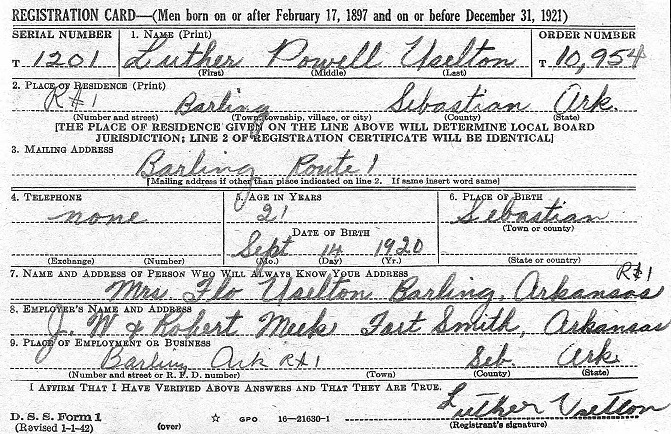 REGISTRATION CARD—(Men born on or after February 17, 1897 and on or before December 31, 1921)
SERIAL NUMBER 1. NAME (Print) ORDER NUMBER
T 1201 Luther Powell Uselton T 10,954
(First) (Middle) (Last)
2. PLACE OF RESIDENCE (Print)
R#1 Barling Sebastian Ark.
(Number and street) (Town, township, village, or city) (County) (State)
[THE PLACE OF RESIDENCE GIVEN ON THE LINE ABOVE WILL DETERMINE LOCAL BOARD
JURISDICTION; LINE 2 OF REGISTRATION CERTIFICATE WILL BE IDENTICAL]
3. MAILING ADDRESS
Barling Route 1
[Mailing address if other than place indicated on line 2. If same insert word same]
4. TELEPHONE 5. AGE IN YEARS 6. PLACE OF BIRTH
none 21 Sebastian
DATE OF BIRTH (Town or county)
Sept 14 1920
(Exchange) (Number) (Mo.) (Day) (Yr.) (State or country)
7. NAME AND ADDRESS OF PERSON WHO WILL ALWAYS KNOW YOUR ADDRESS R#1
Mrs. Flo Uselton Barling, Arkansas
8. EMPLOYER'S NAME AND ADDRESS
J. W & Robert Meek Fort Smith, Arkansas
9. PLACE OF EMPLOYMENT OR BUSINESS
Barling Ark R#1 Seb. Ark.
(Number and street or R. F. D. number) (Town) (County) (State)
I AFFIRM THAT I HAVE VERIFIED ABOVE ANSWERS AND THAT THEY ARE TRUE.
Luther Uselton
D. S. S. Form 1 GPO 16—21630-1 (Registrant's signature)
(Revised 1-1-42) (over)